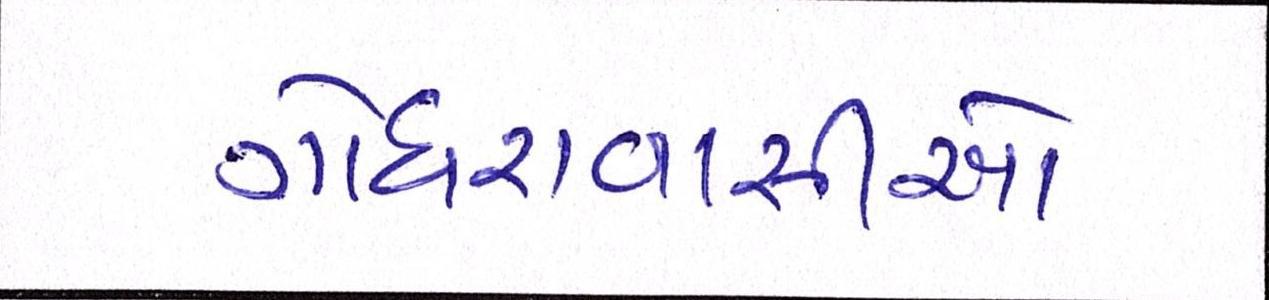 ગોધરાવાસીઓ